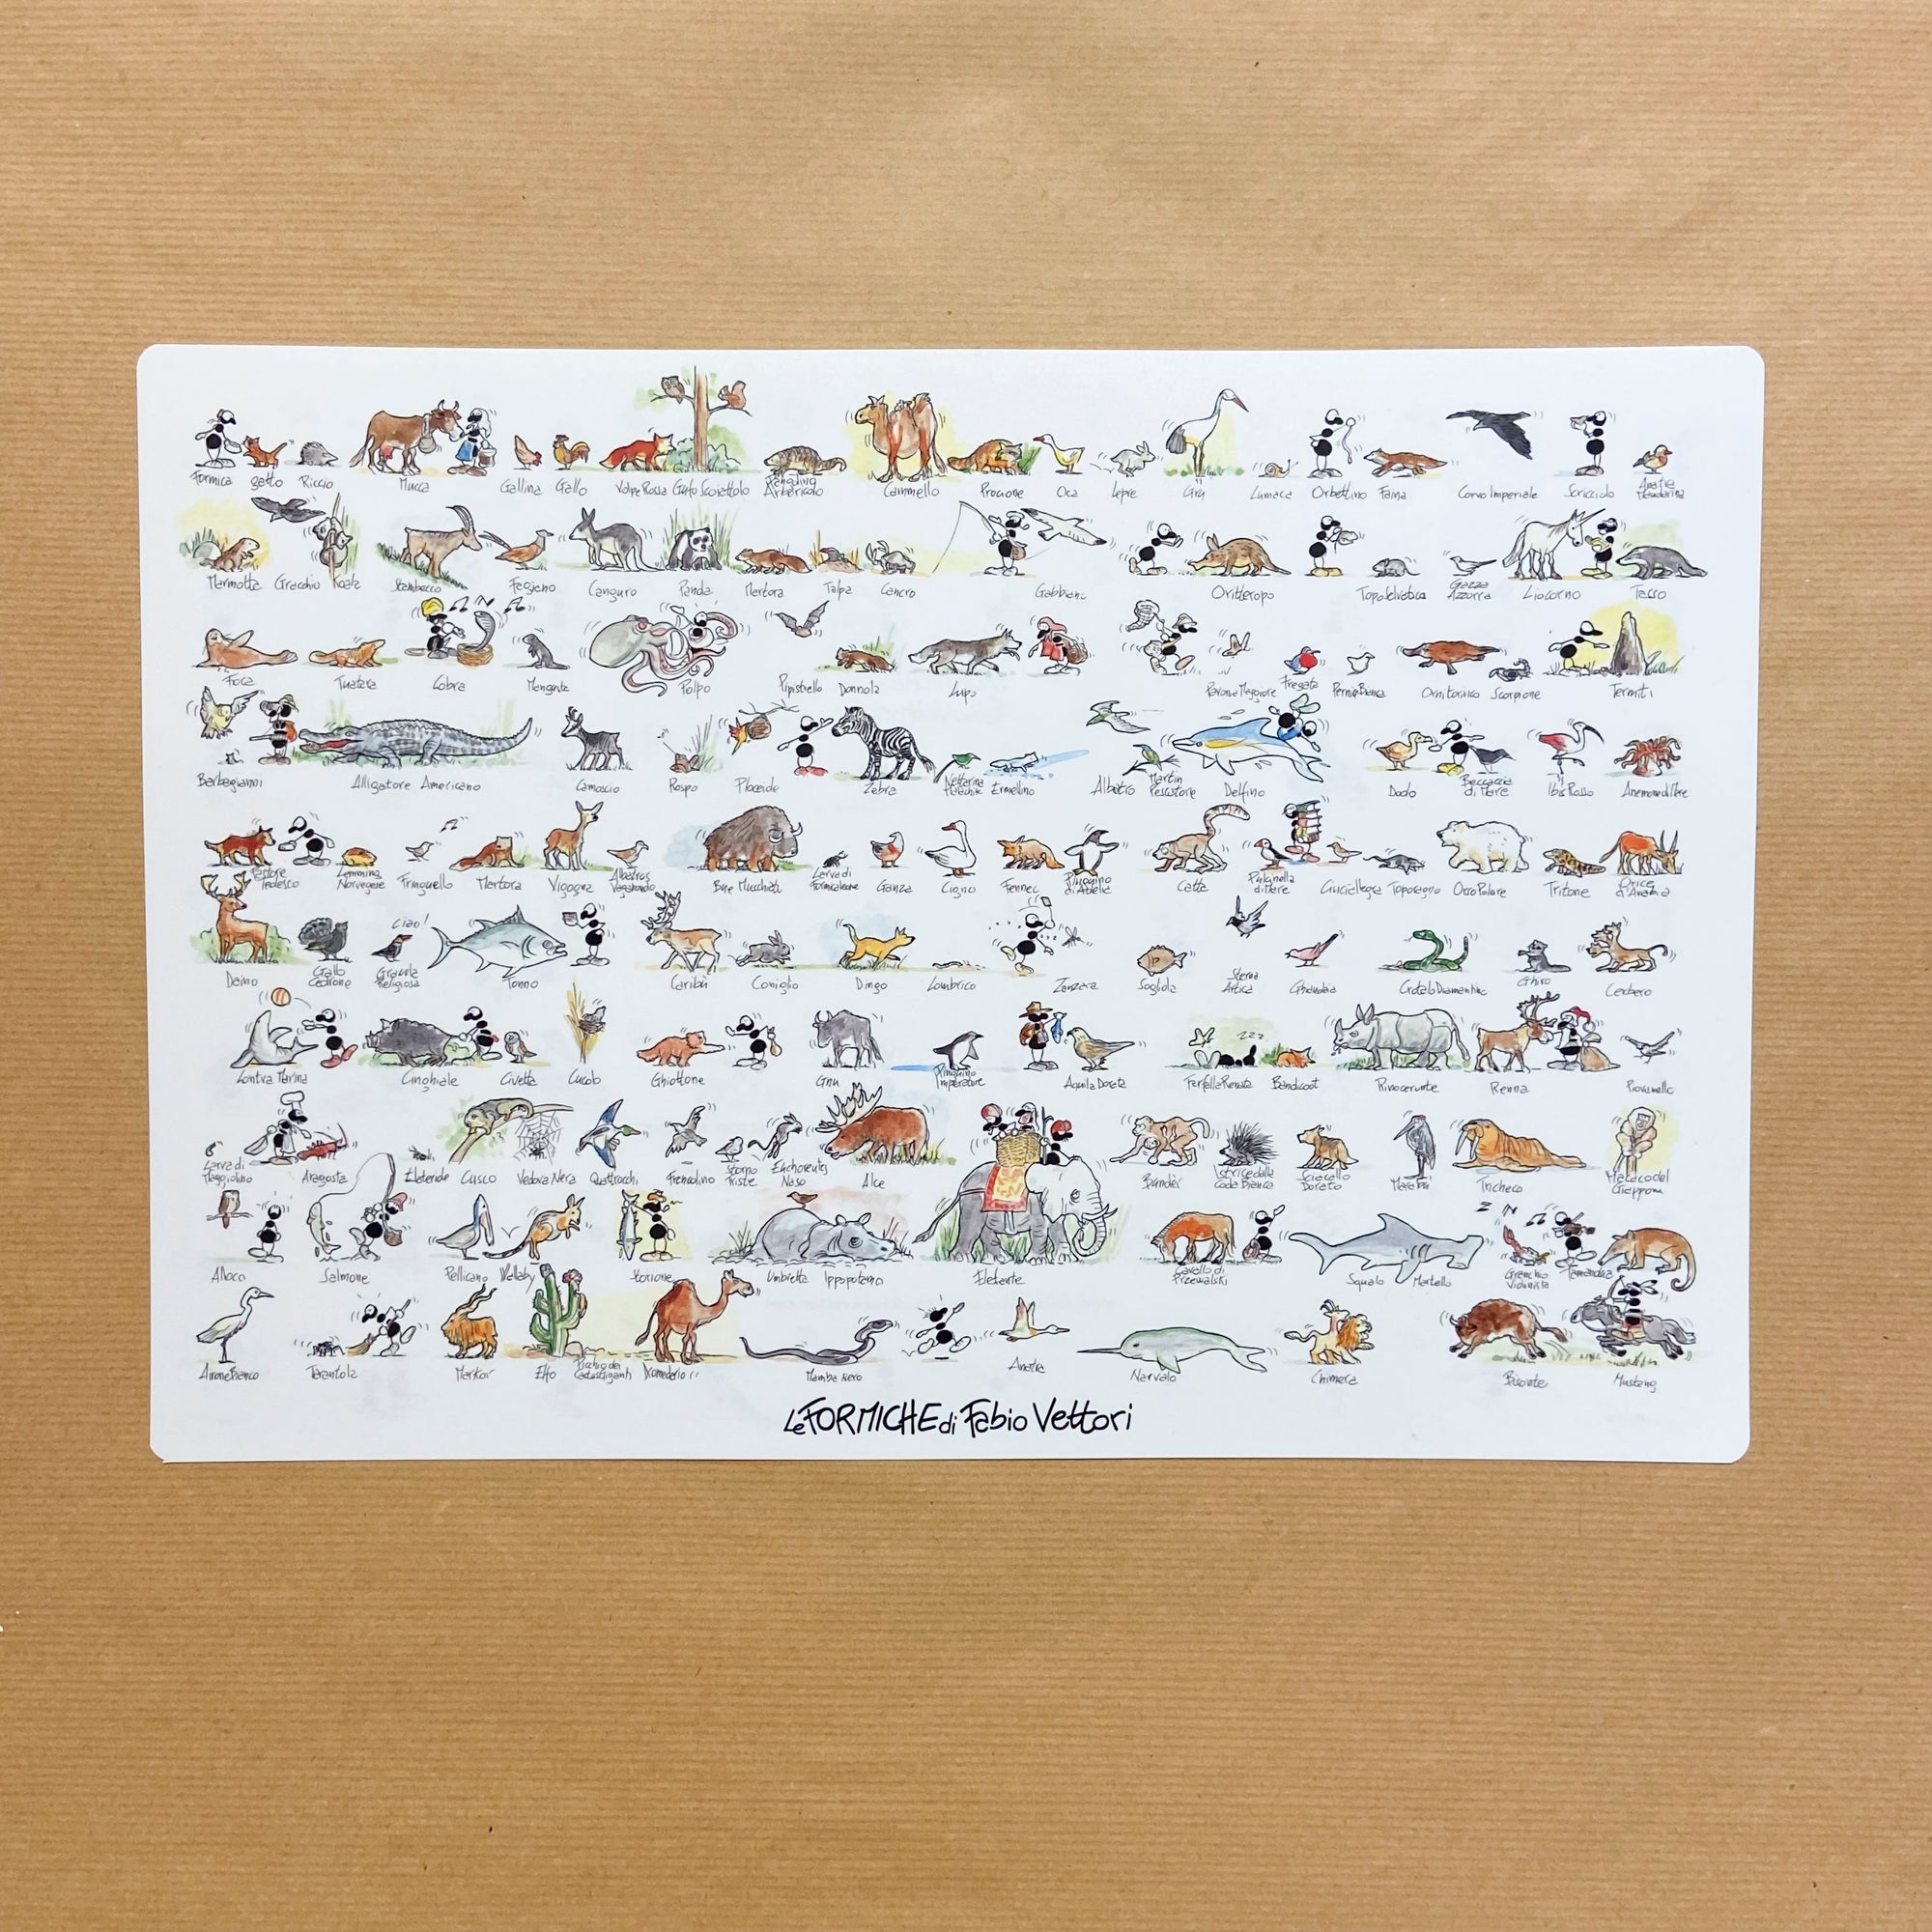 Formica gatto Riccio Mucca Gallina Gallo Volpe Rossa Gufo Scoiattolo Pangolino Arboricolo Cammello Procione Oca Lepre Gru Lumaca Orbettino Faina Corvo Imperiale Scricciolo Anatra Mandarina
Marmotta Gracchio Koala Stambecco Fagiano Canguro Panda Martora Talpa Cancro Gabbiano Oritteropo Topo Selvatico Gazza Azzurra Liocorno Tasso
Foca Tuatara Cobra Mangusta Polpo Pipistrello Donnola Lupo Pavonia Maggiore Fregata Pernice Bianca Ornitorinco Scorpione Termiti
Barbagianni Alligatore Americano Camoscio Rospo Ploceide Zebra Ermellino Albatro Martin Pescatore Delfino Dodo Beccaccia di Mare Ibis Rosso Anemone di Mare
Pastore Tedesco Lemming Norvegese Fringuello Martora Vigogna Albatros Vagabondo Bue Muschiato Larva di Formicaleone Ganza Cigno Fennec Pinguino di Adelie Catta Pulcinella di Mare Cinciallegra Toporagno Orso Polare Tritone Orice d'Arabia
Ciao!
Daino Gallo Cedrone Gracula Religiosa Tonno Caribù Coniglio Dingo Lombrico Zanzara Sogliola Sterna Artica Ghiandaia Crotalo Diamantino Ghiro Cerbero
zzz
Lontra Marina Cinghiale Civetta Ghiottone Gnu Pinguino Imperatore Aquila Dorata Farfalla Renata Bandicoot Rinoceronte Renna Piovanello
Larva di Maggiolino Aragosta Elateride Cusco Vedova Nera Quattrocchi Francolino Storno Triste Alce Bandér Istrice dalla Coda Bianca Sciacallo Dorato Marabù Tricheco Macaco del Giappone
Allocco Salmone Pellicano Wallaby Storione Umbretta Ippopotamo Elefante Cavallo di Przewalski Squalo Martello Granchio Violinista Tamandua
Airone Bianco Tarantola Markor Elfo Picchio dei Cactus Giganti Dromedario Mamba Nero Anatra Narvalo Chimera Bisonte Mustang
Le FORMICHE di Fabio Vettori